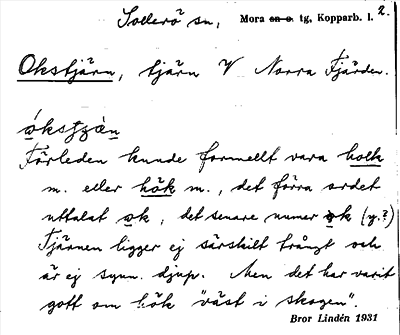 Sollerö sn, Mora sn o. tg, Kopparb. l. 2.
Okstjärn, tjärn V Norra Fjärden.
ókstʒæ̀n
Förleden kunde formellt vara holk
m. eller hök m., det förra ordet
uttalat ok, det senare numer ok (y.?)
Tjärnen ligger ej särskilt trångt och
är ej synn. djup. Men det har varit
gott om hök "väst i skogen".
Bror Lindén 1931